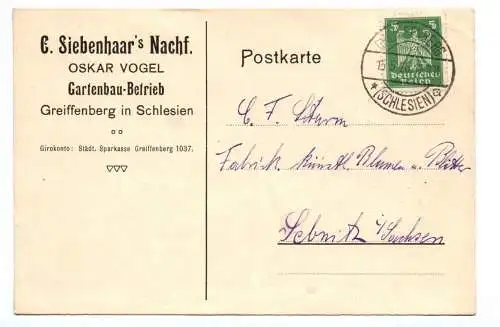 C. Siebenhaar's Nachf.
OSKAR VOGEL
Gartenbau-Betrieb
Greiffenberg in Schlesien
Girokonto: Städt. Sparkasse Greiffenberg 1037.
Postkarte
5 5
Deutsches
Reich
(SCHLESIEN)
C. F. Sturm
Fabrik künstl. Blumen u. Blätter
Sebnitz i/Sachsen